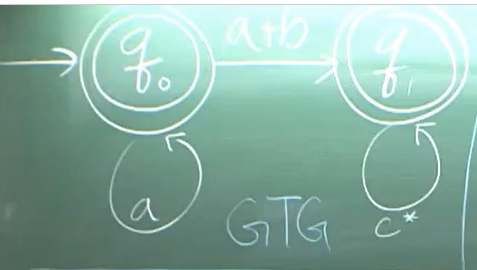 q₀ a+b q₁
a GTG c*